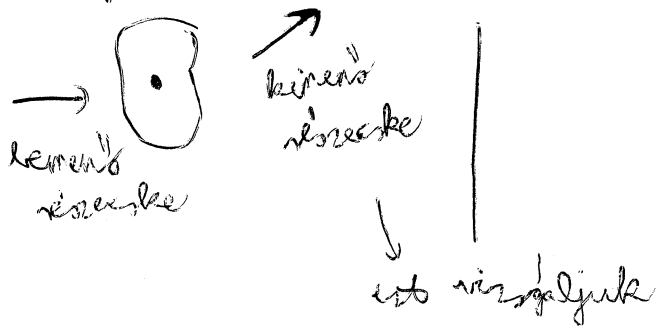 bemenő
részecske
kimenő
részecske
ezt vizsgáljuk